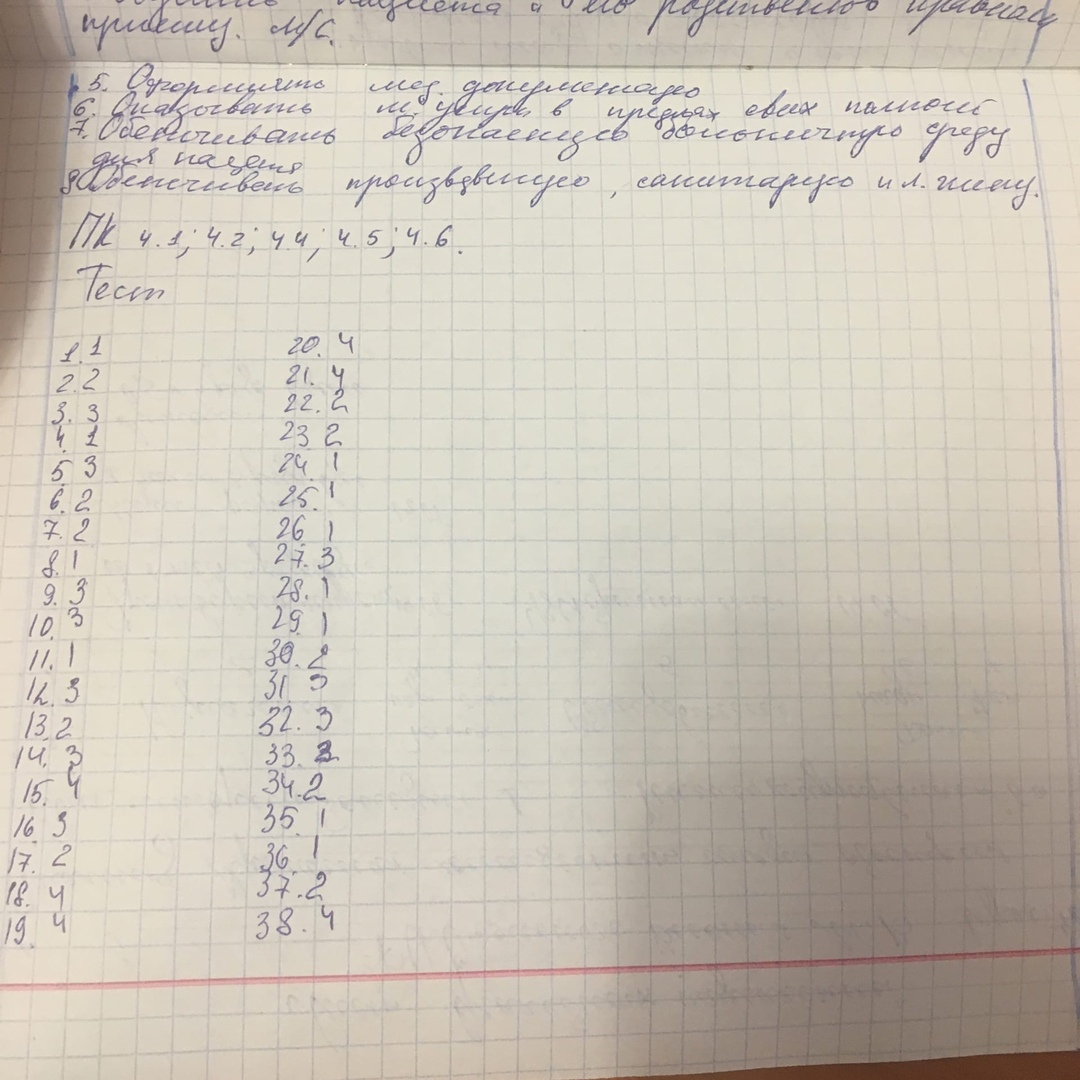 пациента и его родственников правилам
приему. М/С.
5. Оформлять мед. документацю
6. Оказывать м. услуги в пределах своих полноч
7. Обепечивать безопасную больничную среду
для пацента
8 Обепечивать произвдвеную, санитарую и л. гиену.
ПК 4.1; 4.2; 4.4; 4.5; 4.6.
Тест
1. 1
2. 2
3. 3
4. 1
5 3
6. 2
7. 2
8. 1
9. 3
10. 3
11. 1
12. 3
13. 2
14. 3
15. 4
16. 3
17. 2
18. 4
19. 4
20. 4
21. 4
22. 2
23 2
24. 1
25. 1
26 1
27. 3
28. 1
29. 1
30. 2
31. 3
32. 3
33.
34. 2
35. 1
36. 1
37. 2
38. 4